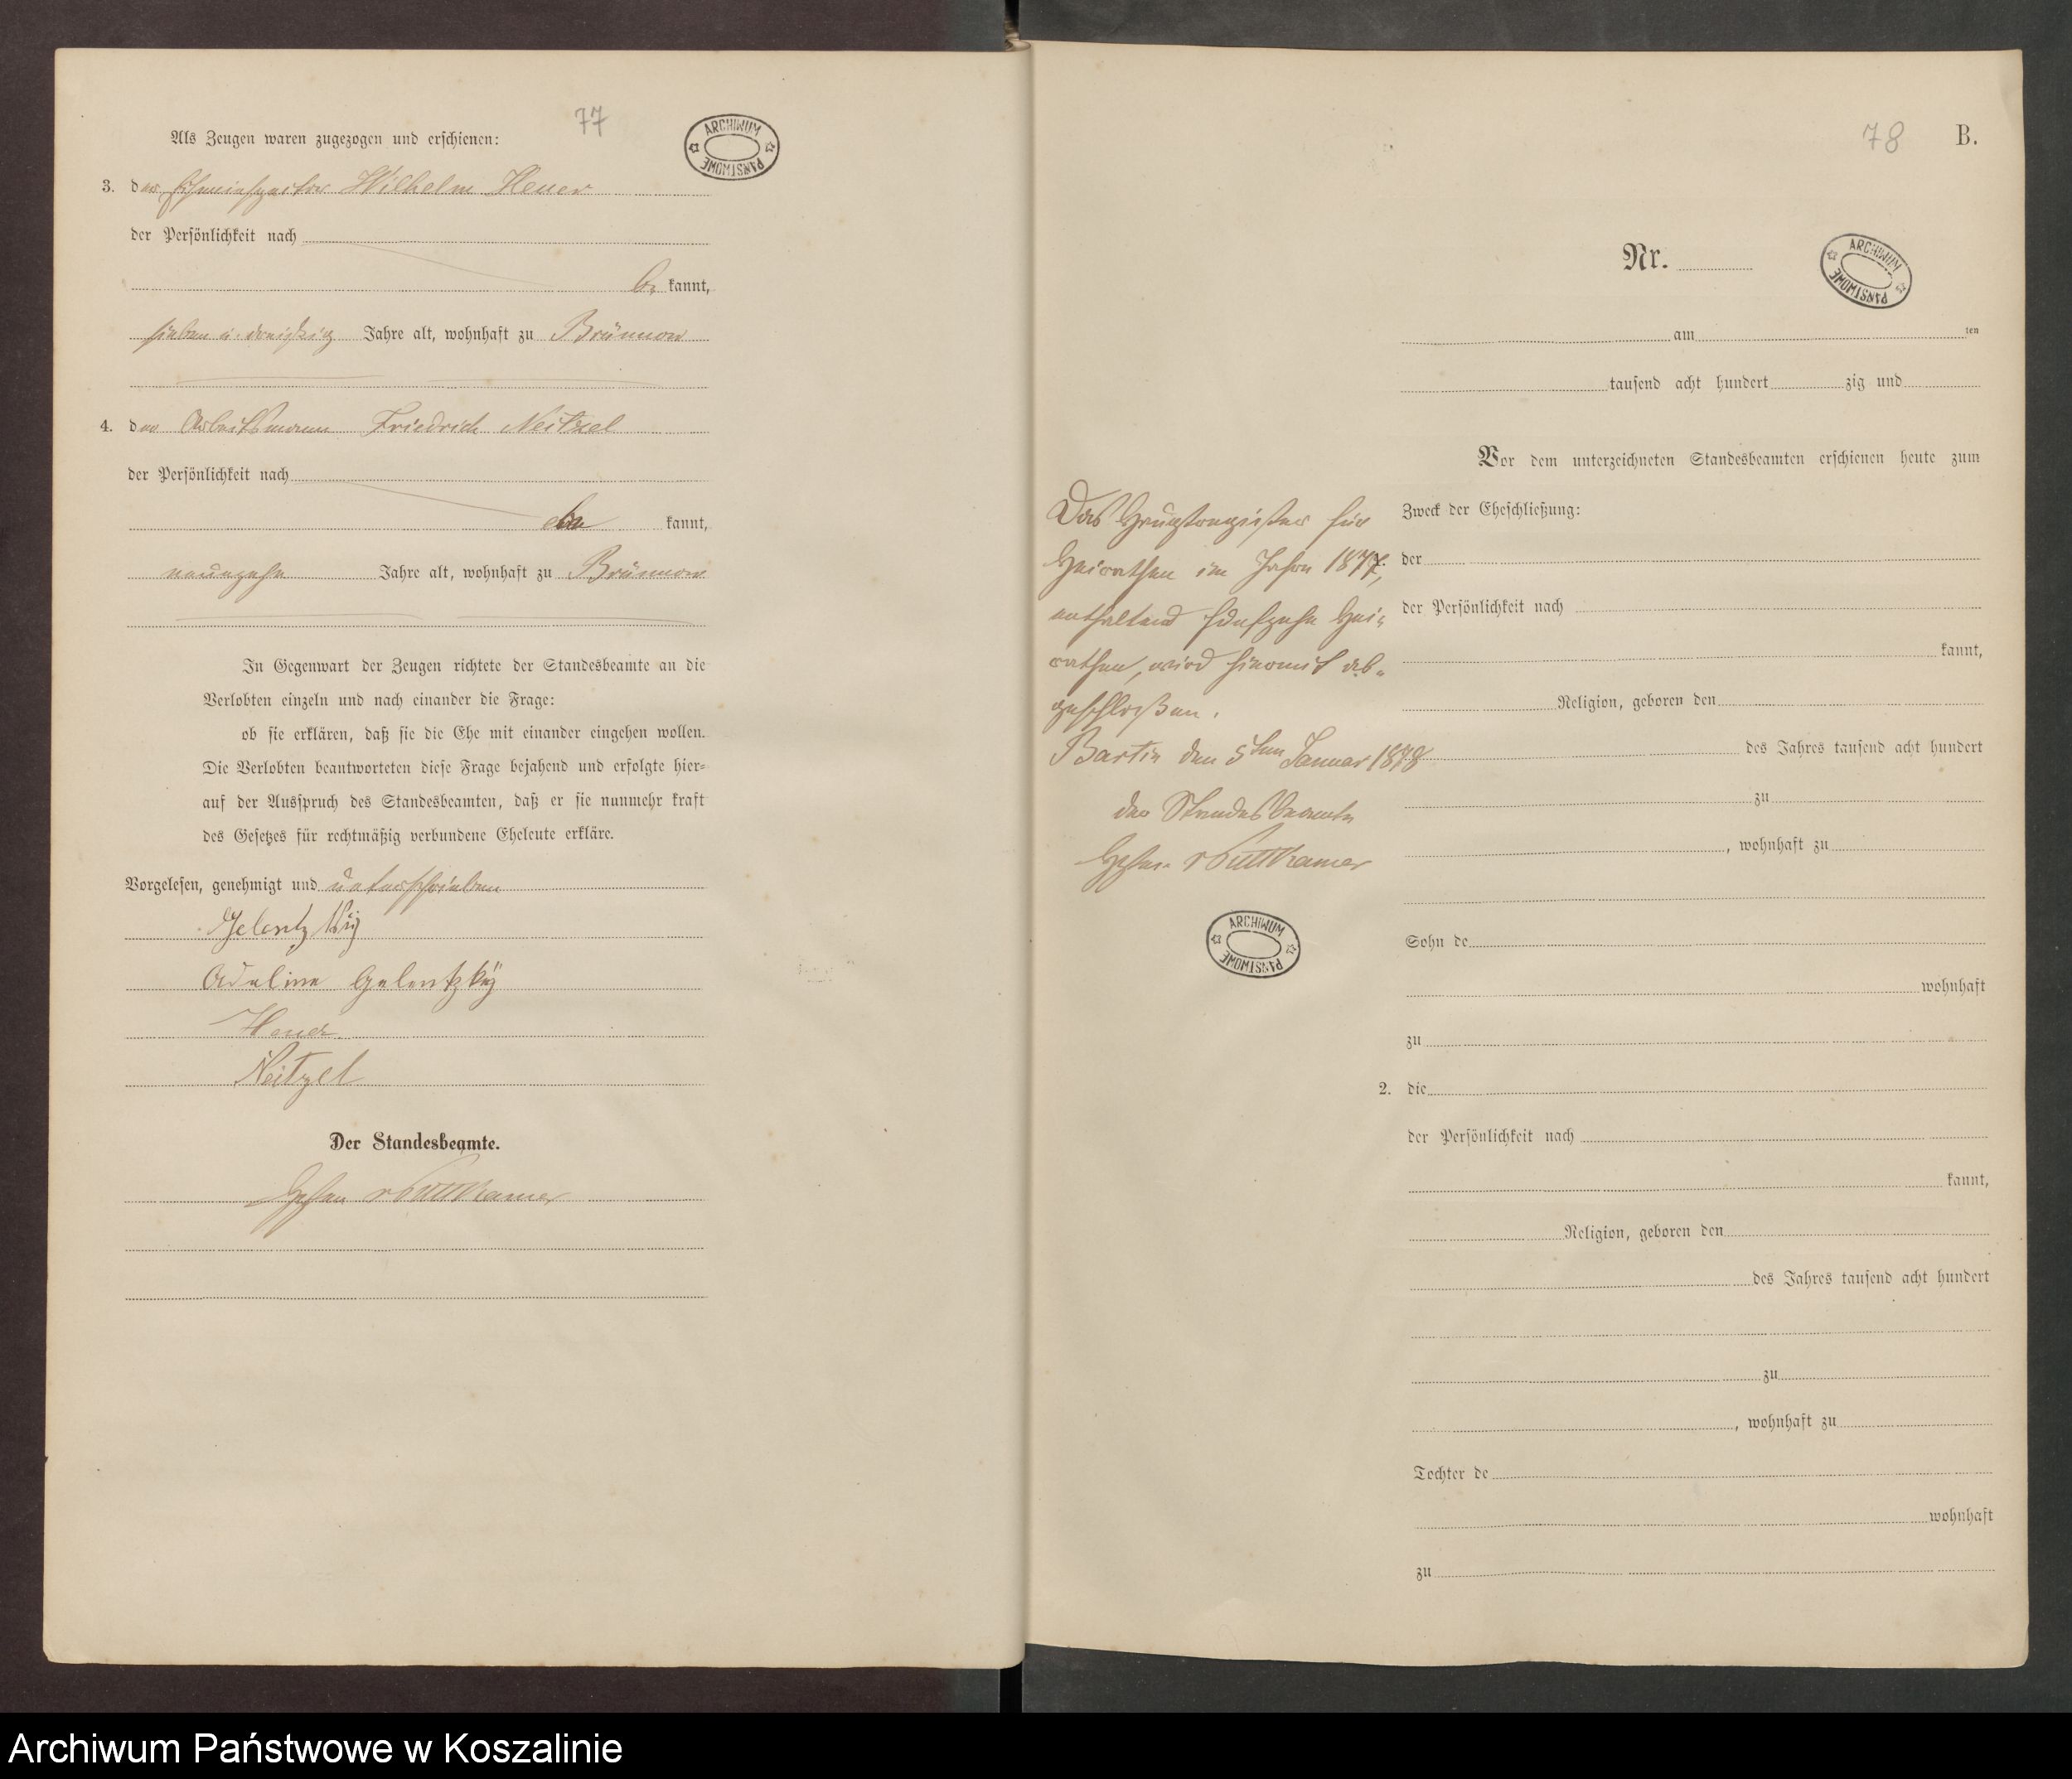 77
ARCHIWUM PAŃSTWOWE
Als Zeugen waren zugezogen und erschienen:
3. der Wilhelm Heuer
der Persönlichkeit nach
be kannt,
sieben u. dreißzig Jahre alt, wohnhaft zu Brünnow
4. der Arbeitsmann Friedrich Neitzel
der Persönlichkeit nach
kannt,
neunzehn Jahre alt, wohnhaft zu Brünnow
In Gegenwart der Zeugen richtete der Standesbeamte an die
Verlobten einzeln und nach einander die Frage:
ob sie erklären, daß sie die Ehe mit einander eingehen wollen.
Die Verlobten beantworteten diese Frage bejahend und erfolgte hier-
auf der Ausspruch des Standesbeamten, daß er sie nunmehr kraft
des Gesetzes für rechtmäßig verbundene Eheleute erkläre.
Vorgelesen, genehmigt und unterschrieben
Gelentzky
Adeline Gelentzky
Heuer
Neitzel
Der Standesbeamte.
Puttkamer
78 B.
Nr.
ARCHIWUM PAŃSTWOWE
am ten
tausend acht hundert zig und
Vor dem unterzeichneten Standesbeamten erschienen heute zum
Zweck der Eheschließung:
der
der Persönlichkeit nach
kannt,
Religion, geboren den
des Jahres tausend acht hundert
zu
, wohnhaft zu
Sohn de
wohnhaft
zu
2. die
der Persönlichkeit nach
kannt,
Religion, geboren den
des Jahres tausend acht hundert
zu
, wohnhaft zu
Tochter de
wohnhaft
zu
Das Hauptregister für
Heirathen im Jahre 1877,
enthaltend fünfzehn Hei-
rathen, wird hiermit ab-
geschloßen.
Bartin den 5ten Januar 1878
der Standesbeamte
Puttkamer
ARCHIWUM PAŃSTWOWE
Archiwum Państwowe w Koszalinie